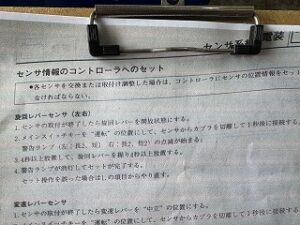 電装
センサ情報のコントローラへのセット
●各センサを交換または取付け調整した場合は、コントローラにセンサの位置情報をセット
なければならない。
旋回レバーセンサ（左右）
1.センサの取付が終了したら旋回レバーを開放状態にする。
2.メインスイッチキーを"運転"の位置にして、センサからカプラを切離して1秒後に接続する。
警告ランプ（左：長2、短　右：長2、短2）の点滅が始まる。
3.4秒以上放置して、旋回レバーを握り4秒以上放置する。
4.警告ランプが消灯してセットが完了する。
セット操作を誤った場合は1.の項目からやり直す。
変速レバーセンサ
1.センサの取付が終了したら変速レバーを"中立"の位置にする。
"運転"の位置にして、センサからカプラを切離して1秒後に接続す